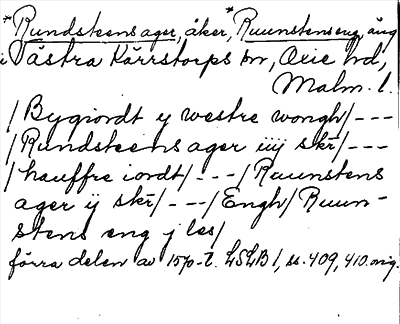 *Rundsteensager, åker, *Ruunstens eng, äng
i Västra Kärrstorps sn, Oxie hd,
Malm. l.
/Bygiordt y westre wongh/---
/Rundsteens ager iiij skr/---
/hauffre iordt/---/Raunstens
ager ij skr/---/Engh/Ruun-
stens eng j les/
förra delen av 1570-t. LSLB 1, ss. 409, 410. orig.